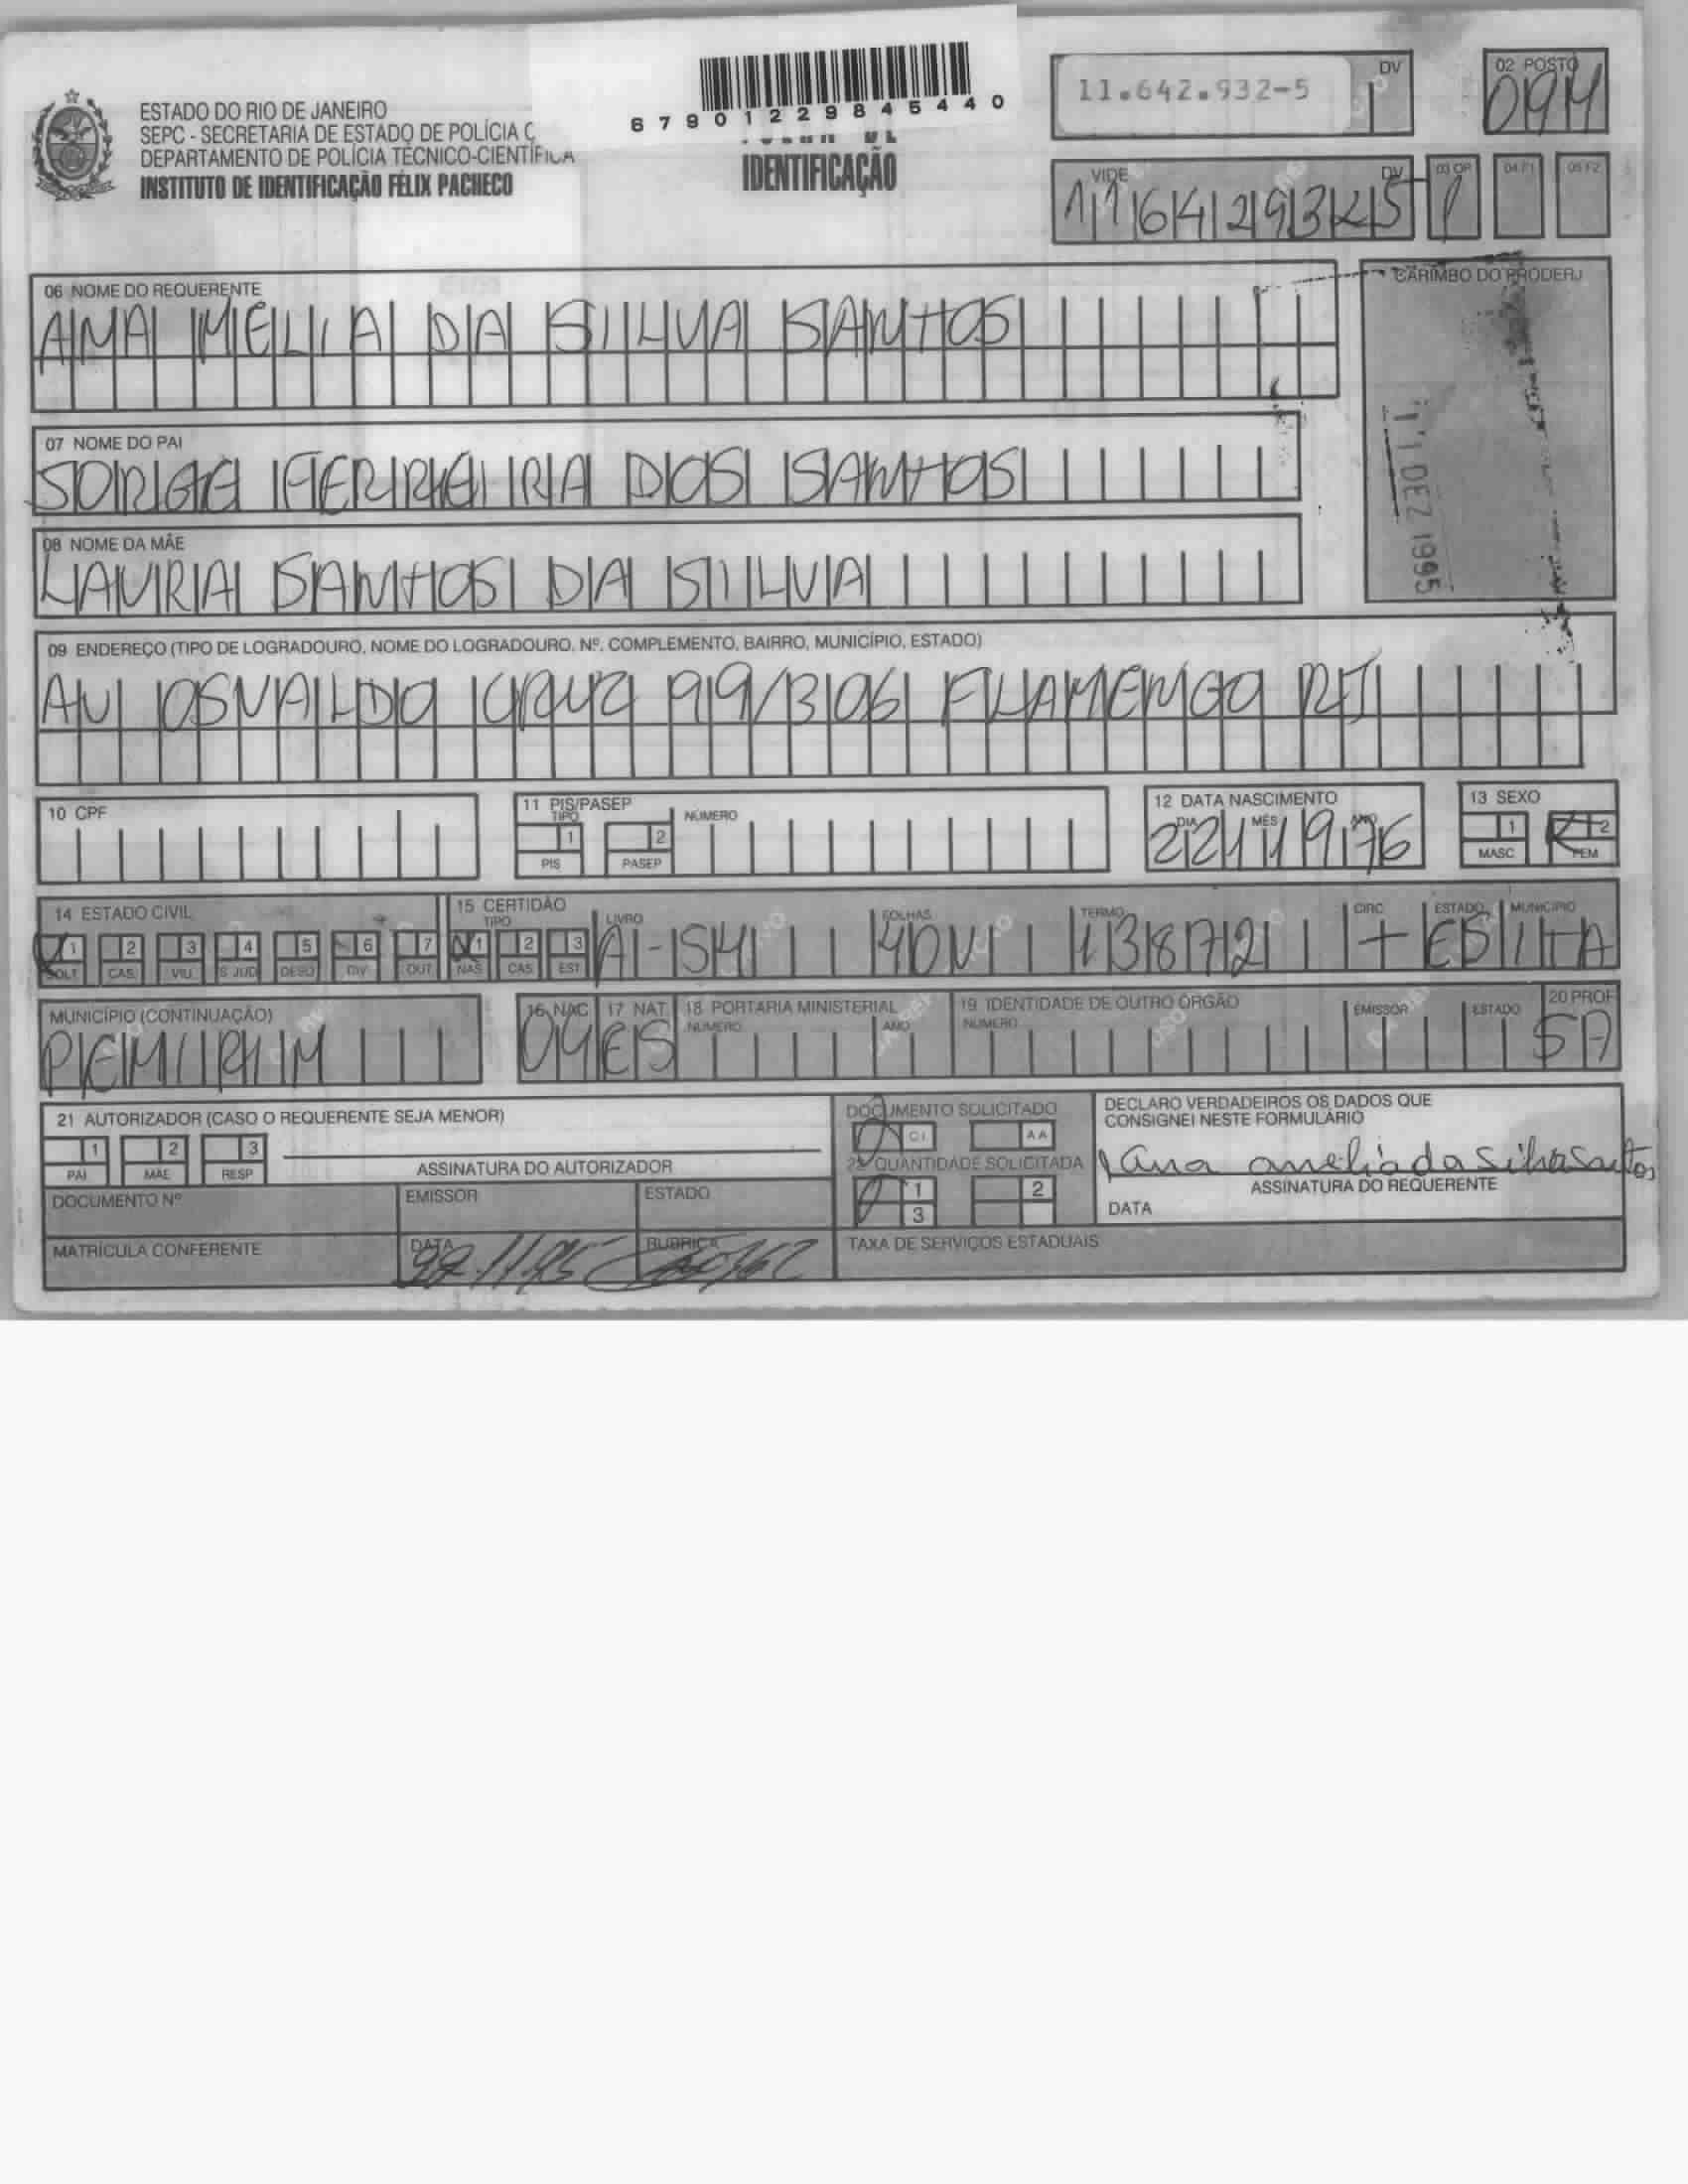 6 7 9 0 1 2 2 9 8 4 5 4 4 0
ESTADO DO RIO DE JANEIRO
SEPC - SECRETARIA DE ESTADO DE POLÍCIA C
DEPARTAMENTO DE POLÍCIA TÉCNICO-CIENTÍFICA
INSTITUTO DE IDENTIFICAÇÃO FÉLIX PACHECO
IDENTIFICAÇÃO
11.642.932-5
DV
02 POSTO
094
VIDE
DV
116429325
03 OP
04 F1
05 F2
06 NOME DO REQUERENTE
ANA MELIA DA SILVA SANTOS
CARIMBO DO PRODERJ
11 DEZ 1995
07 NOME DO PAI
JORGE FERREIRA DOS SANTOS
08 NOME DA MÃE
LAURA SANTOS DA SILVA
09 ENDEREÇO (TIPO DE LOGRADOURO, NOME DO LOGRADOURO, Nº, COMPLEMENTO, BAIRRO, MUNICÍPIO, ESTADO)
AV OSVALDO CRUZ 99/306 FLAMENGO RJ
10 CPF
11 PIS/PASEP
TIPO
1 PIS
2 PASEP
NÚMERO
12 DATA NASCIMENTO
DIA MÊS ANO
22 11 1976
13 SEXO
1 MASC
2 FEM
14 ESTADO CIVIL
1 2 3 4 5 6 7
SOLT. CAS. VIU. S JUD DESQ DIV. OUT.
15 CERTIDÃO
TIPO
1 2 3
NAS CAS. EST.
LIVRO
A-154
FOLHAS
40V
TERMO
13872
CIRC.
ESTADO
ES
MUNICÍPIO
ITA
MUNICÍPIO (CONTINUAÇÃO)
PEMIRIM
16 NAC
17 NAT
ES
18 PORTARIA MINISTERIAL
NÚMERO
ANO
19 IDENTIDADE DE OUTRO ÓRGÃO
NÚMERO
EMISSOR
ESTADO
20 PROF
21 AUTORIZADOR (CASO O REQUERENTE SEJA MENOR)
1 2 3
PAI MÃE RESP
ASSINATURA DO AUTORIZADOR
DOCUMENTO Nº
EMISSOR
ESTADO
MATRÍCULA CONFERENTE
DATA
RUBRICA
DOCUMENTO SOLICITADO
CI
AA
QUANTIDADE SOLICITADA
1
2
3
TAXA DE SERVIÇOS ESTADUAIS
DECLARO VERDADEIROS OS DADOS QUE
CONSIGNEI NESTE FORMULÁRIO
Ana amelia da Silva Santos
ASSINATURA DO REQUERENTE
DATA